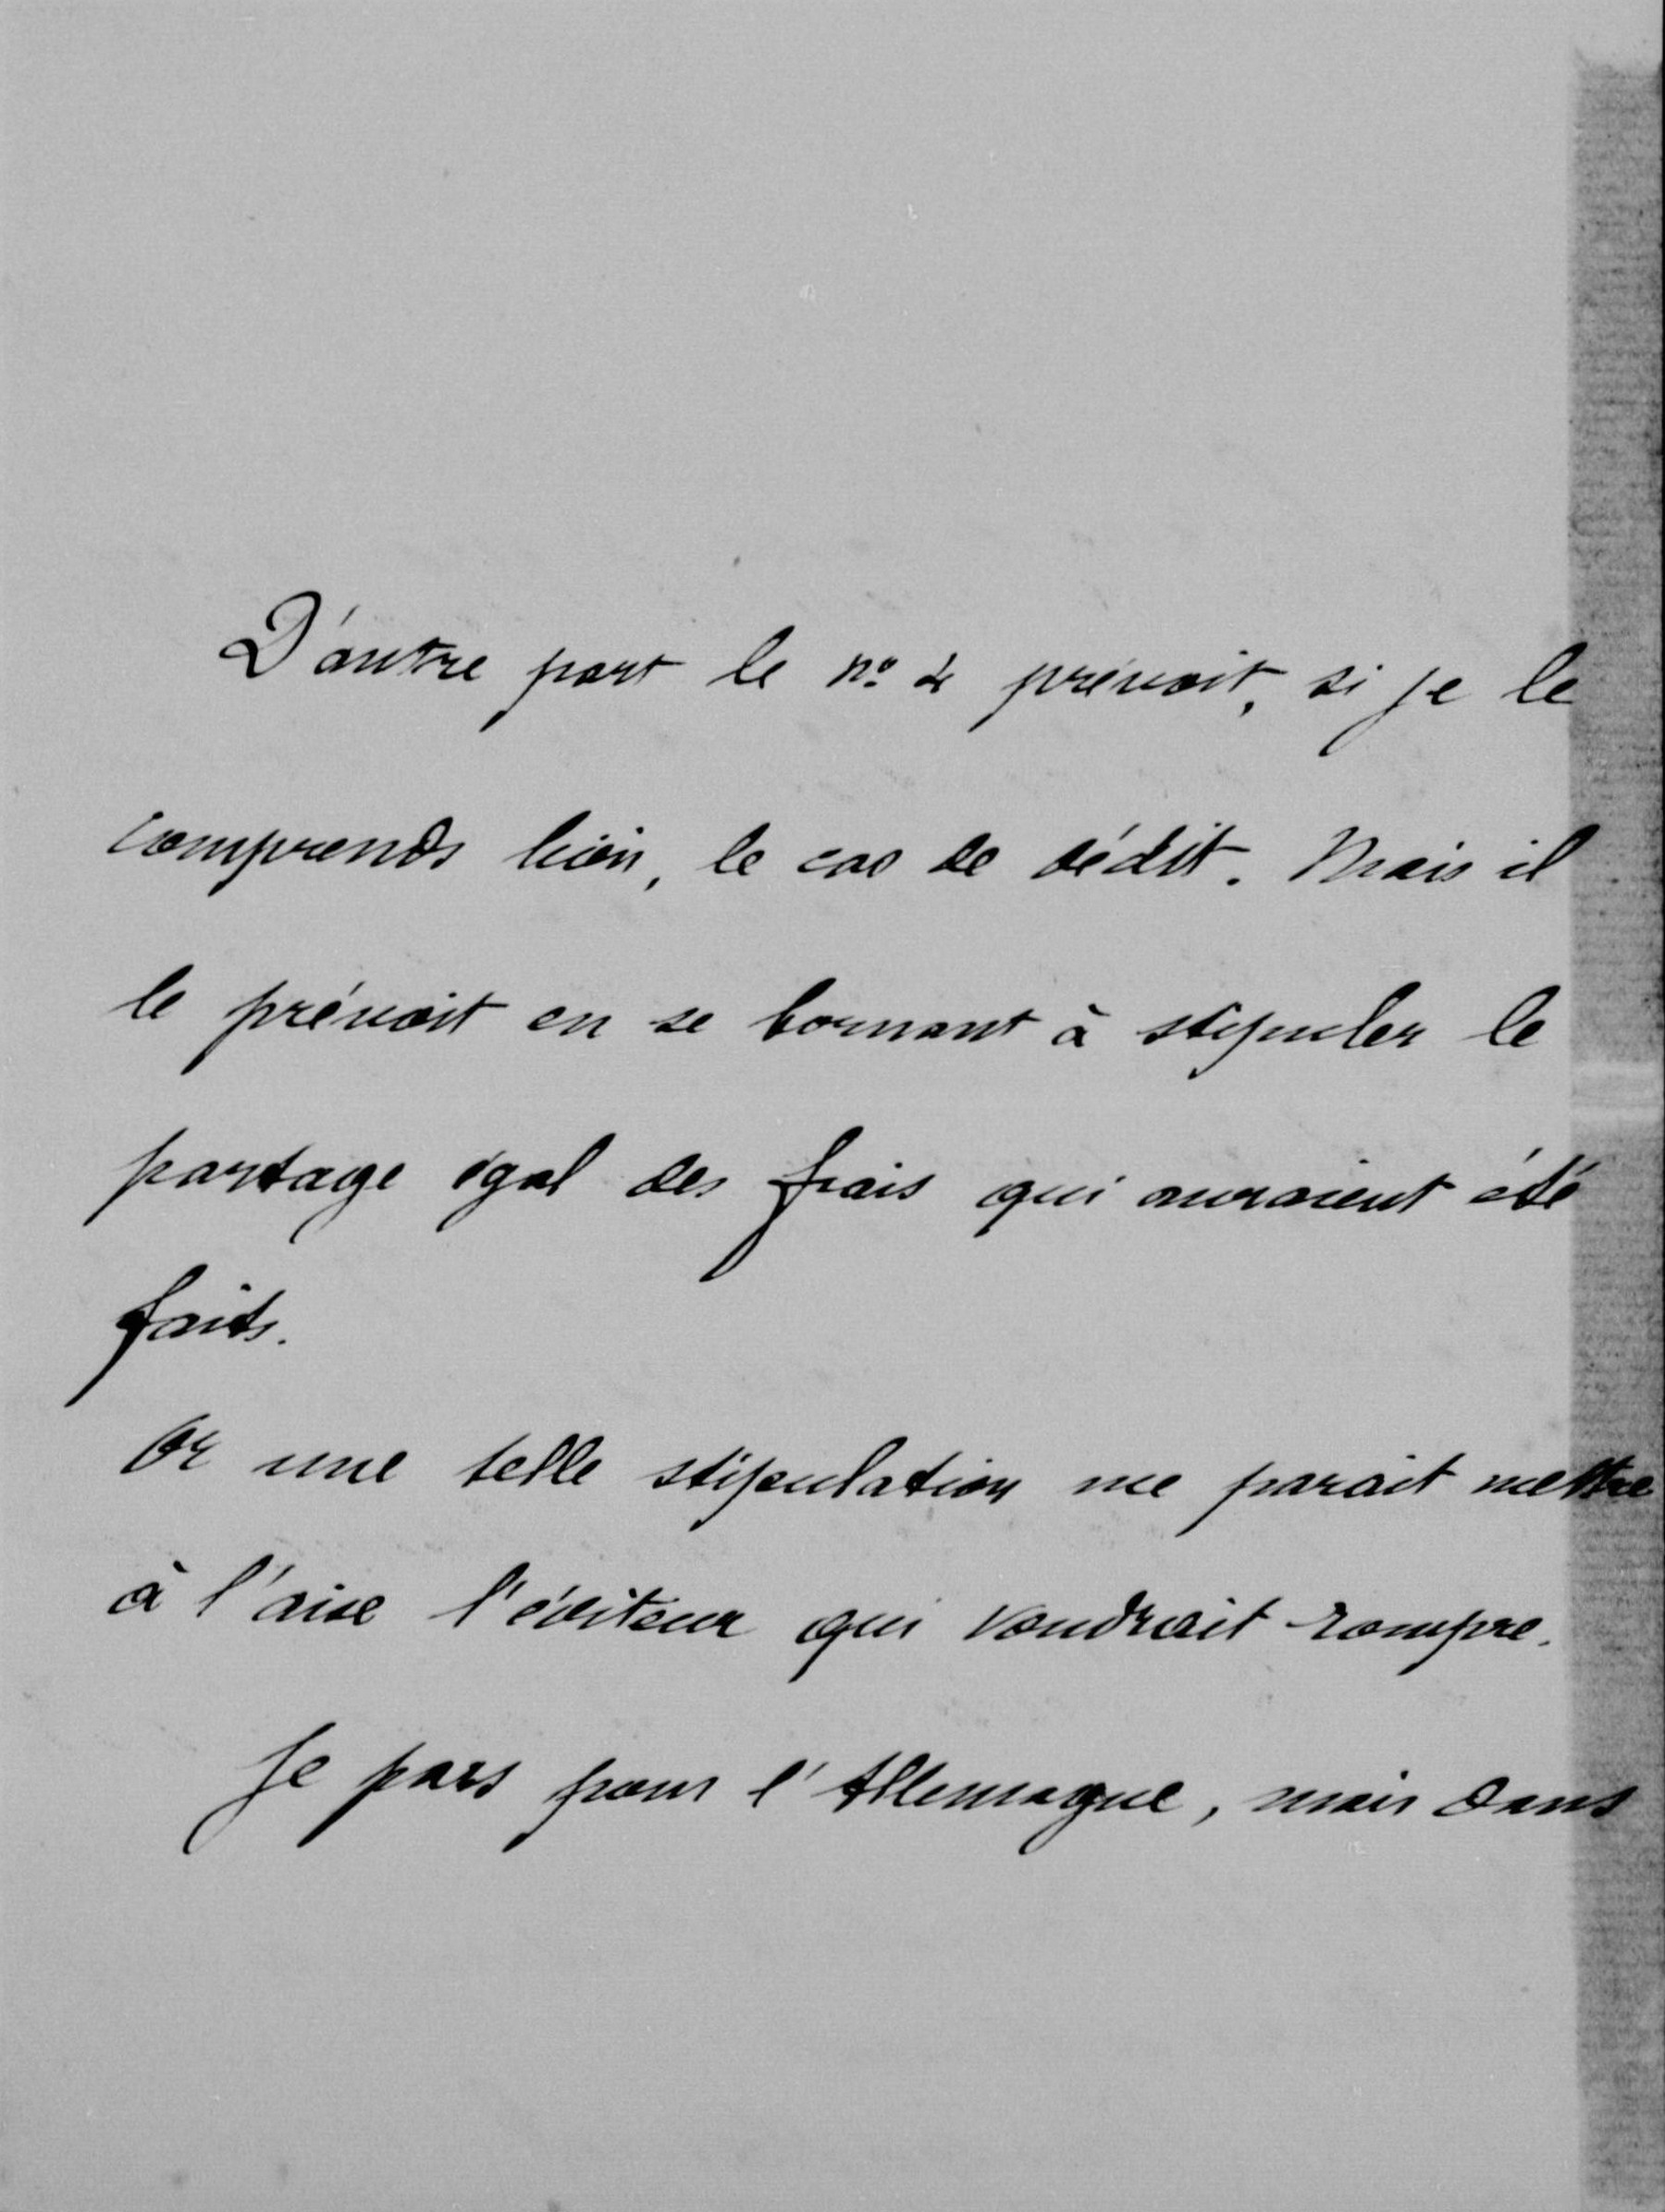 D'autre part le nº 4 prévoit, si je le
comprends bien, le cas de dédit. Mais il
le prévoit en se bornant à stipuler le
partage égal des frais qui auraient été
faits.
Or une telle stipulation me parait mettre
à l'aise l'éditeur qui voudrait rompre.
Je pars pour l'Allemagne, mais dans